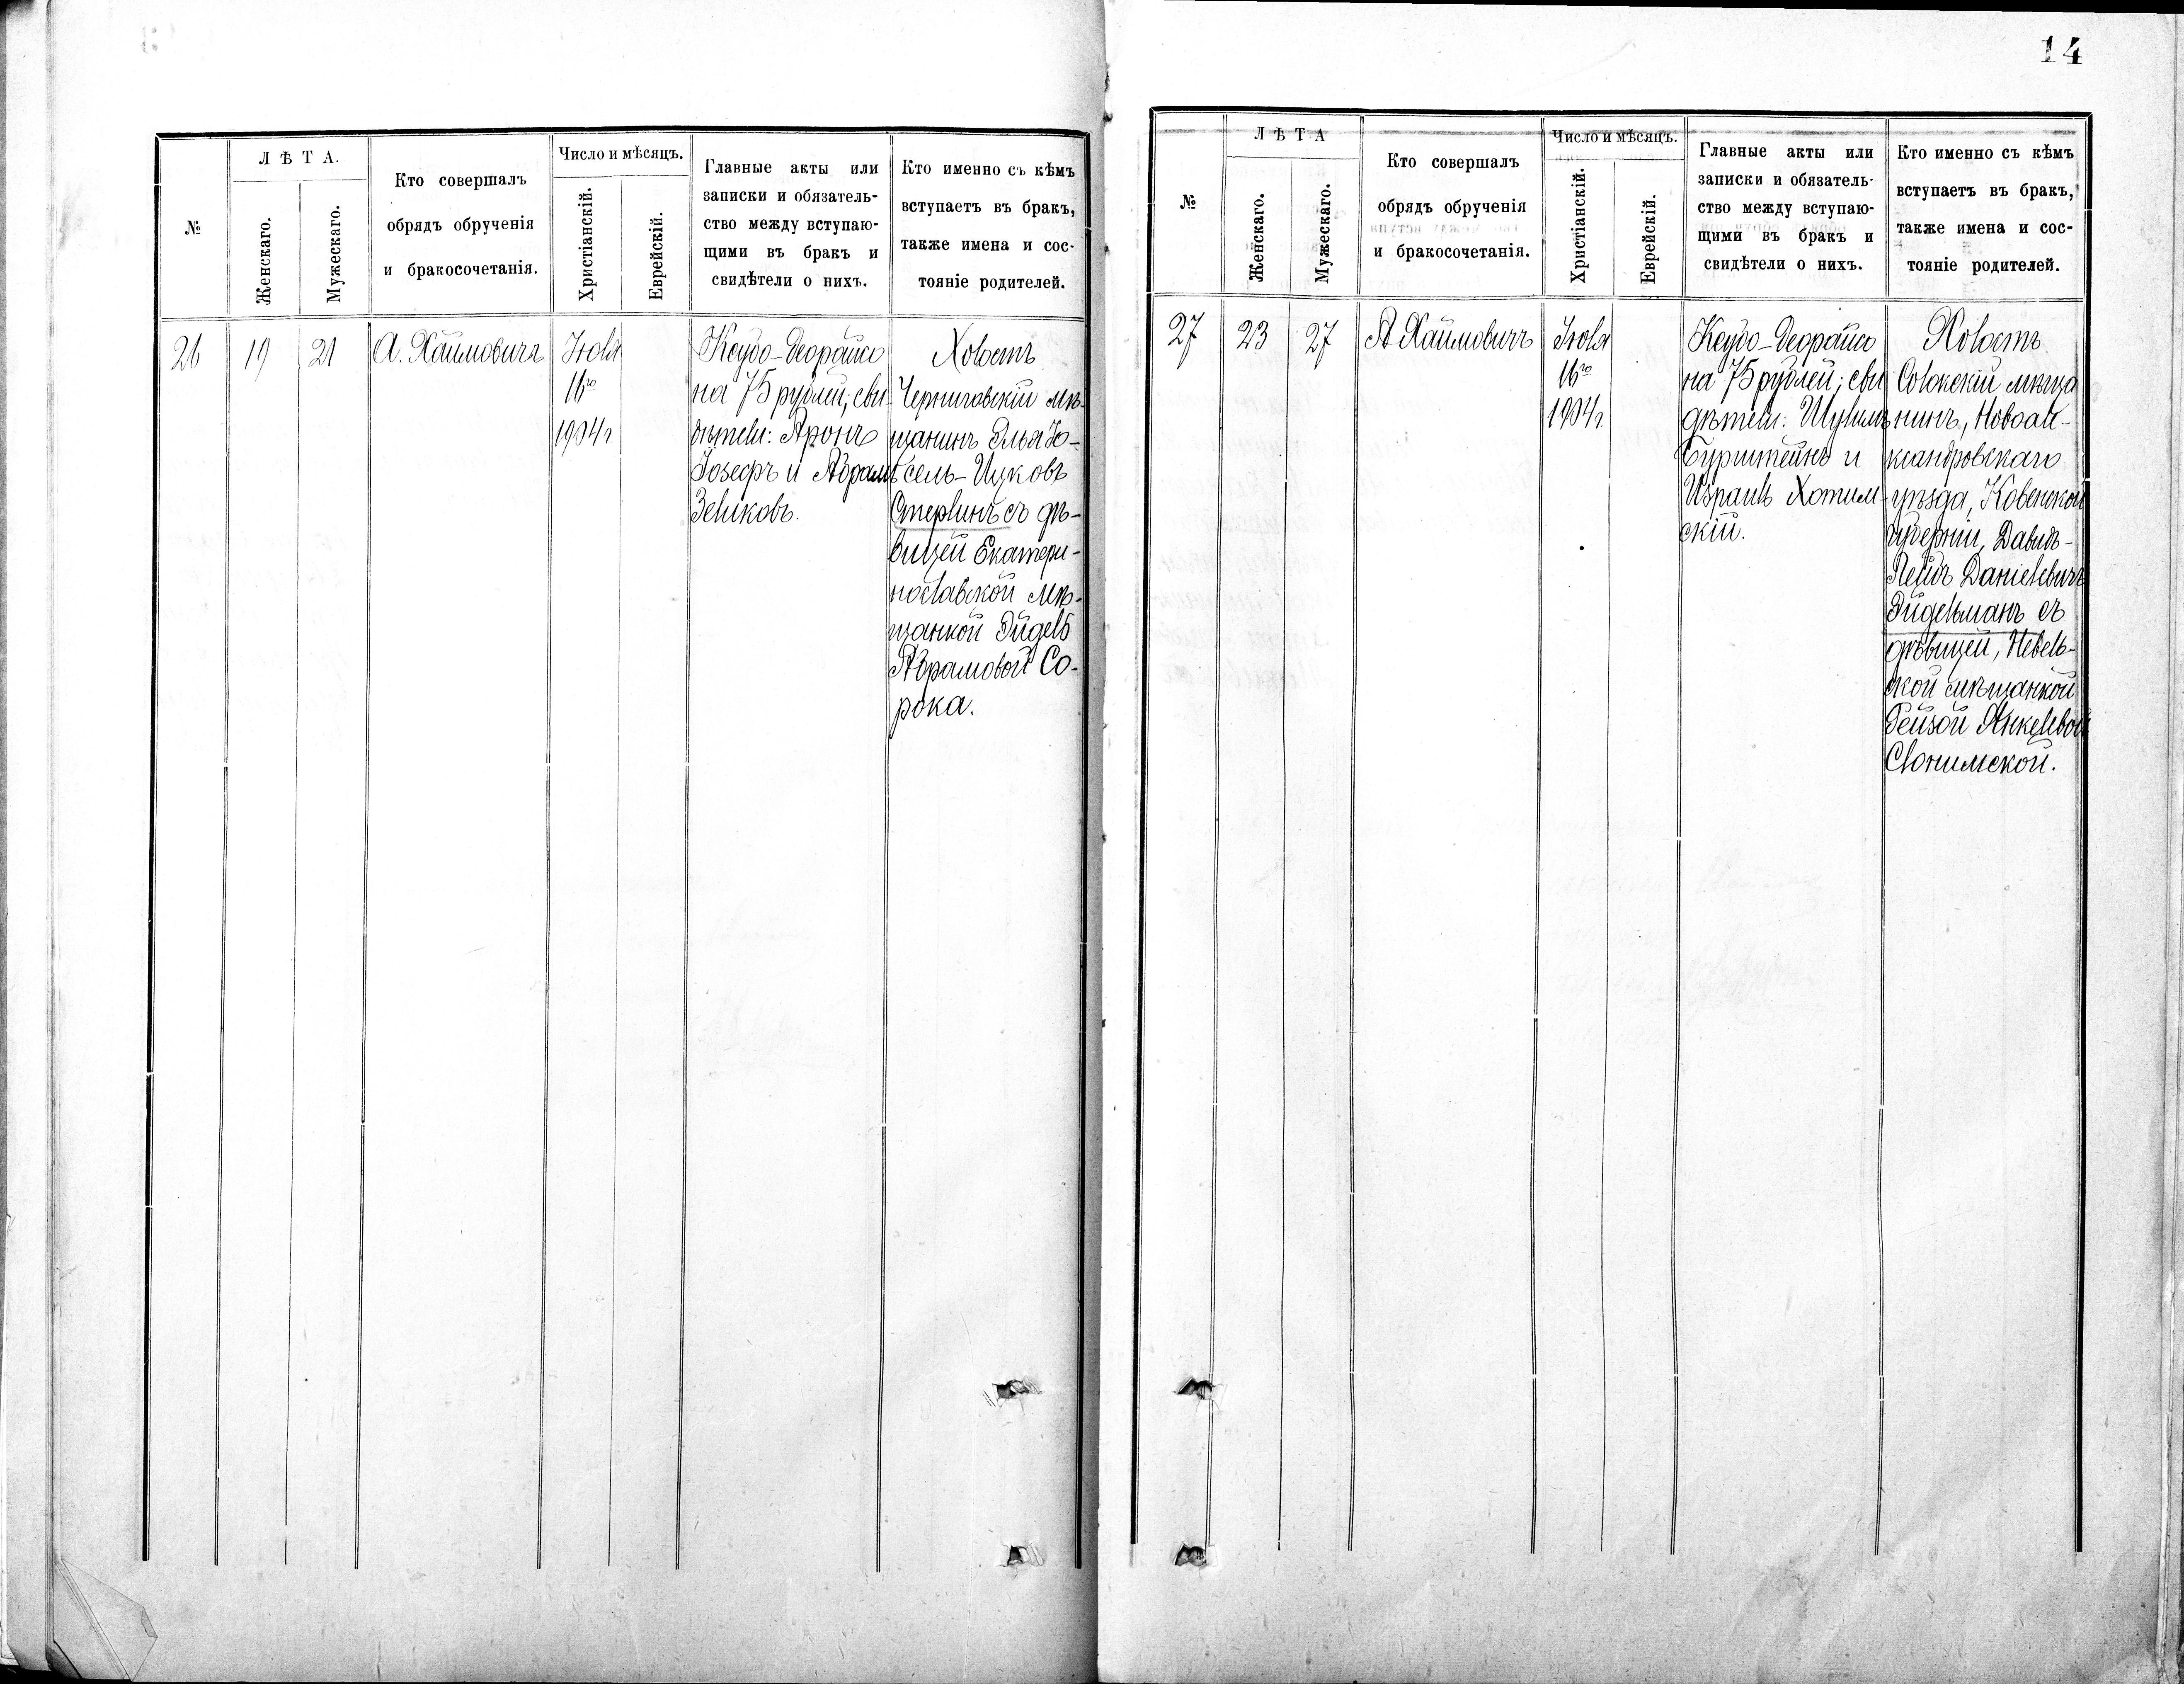 №
Л Ѣ Т А.
Женскаго.
Мужескаго.
Кто совершалъ
обрядъ обрученія
и бракосочетанія.
Число и мѣсяцъ.
Христіанскій.
Еврейскій.
Главные акты или
записки и обязатель-
ство между вступаю-
щими въ бракъ и
свидѣтели о нихъ.
Кто именно съ кѣмъ
вступаетъ въ бракъ,
также имена и сос-
тояніе родителей.
26
19
21
А. Хаймовичъ
Іюля
16го
1904 г
Ксубо-Деорайсо
на 75 рублей; сви-
дѣтели: Аронъ
Іозефъ и Абрамъ
Зеликовъ.
Холостъ
Черниговскій мѣ-
щанинъ Элья Іо-
сель-Ицковъ
Стерлинъ съ дѣ-
вицей Екатери-
нославской мѣ-
щанкой Эйдель
Абрамовой Со-
рока.
14
№
Л Ѣ Т А
Женскаго.
Мужескаго.
Кто совершалъ
обрядъ обрученія
и бракосочетанія.
Число и мѣсяцъ.
Христіанскій.
Еврейскій.
Главные акты или
записки и обязатель-
ство между вступаю-
щими въ бракъ и
свидѣтели о нихъ.
Кто именно съ кѣмъ
вступаетъ въ бракъ,
также имена и сос-
тояніе родителей.
27
23
27
А Хаймовичъ
Іюля
16го
1904 г.
Ксубо-Деорайсо
на 75 рублей; сви
дѣтели: Шулимъ
Бурштейнъ и
Израиль Хотим-
скій.
Холостъ
Солокскій мѣща
нинъ, Новоале-
ксандровскаго
уѣзда, Ковенской
губерніи, Давидъ-
Лейбъ Даніелевичъ
Эйдельманъ съ
дѣвицей, Невель-
ской мѣщанкой
Гейзой Янкелевой
Слонимской.